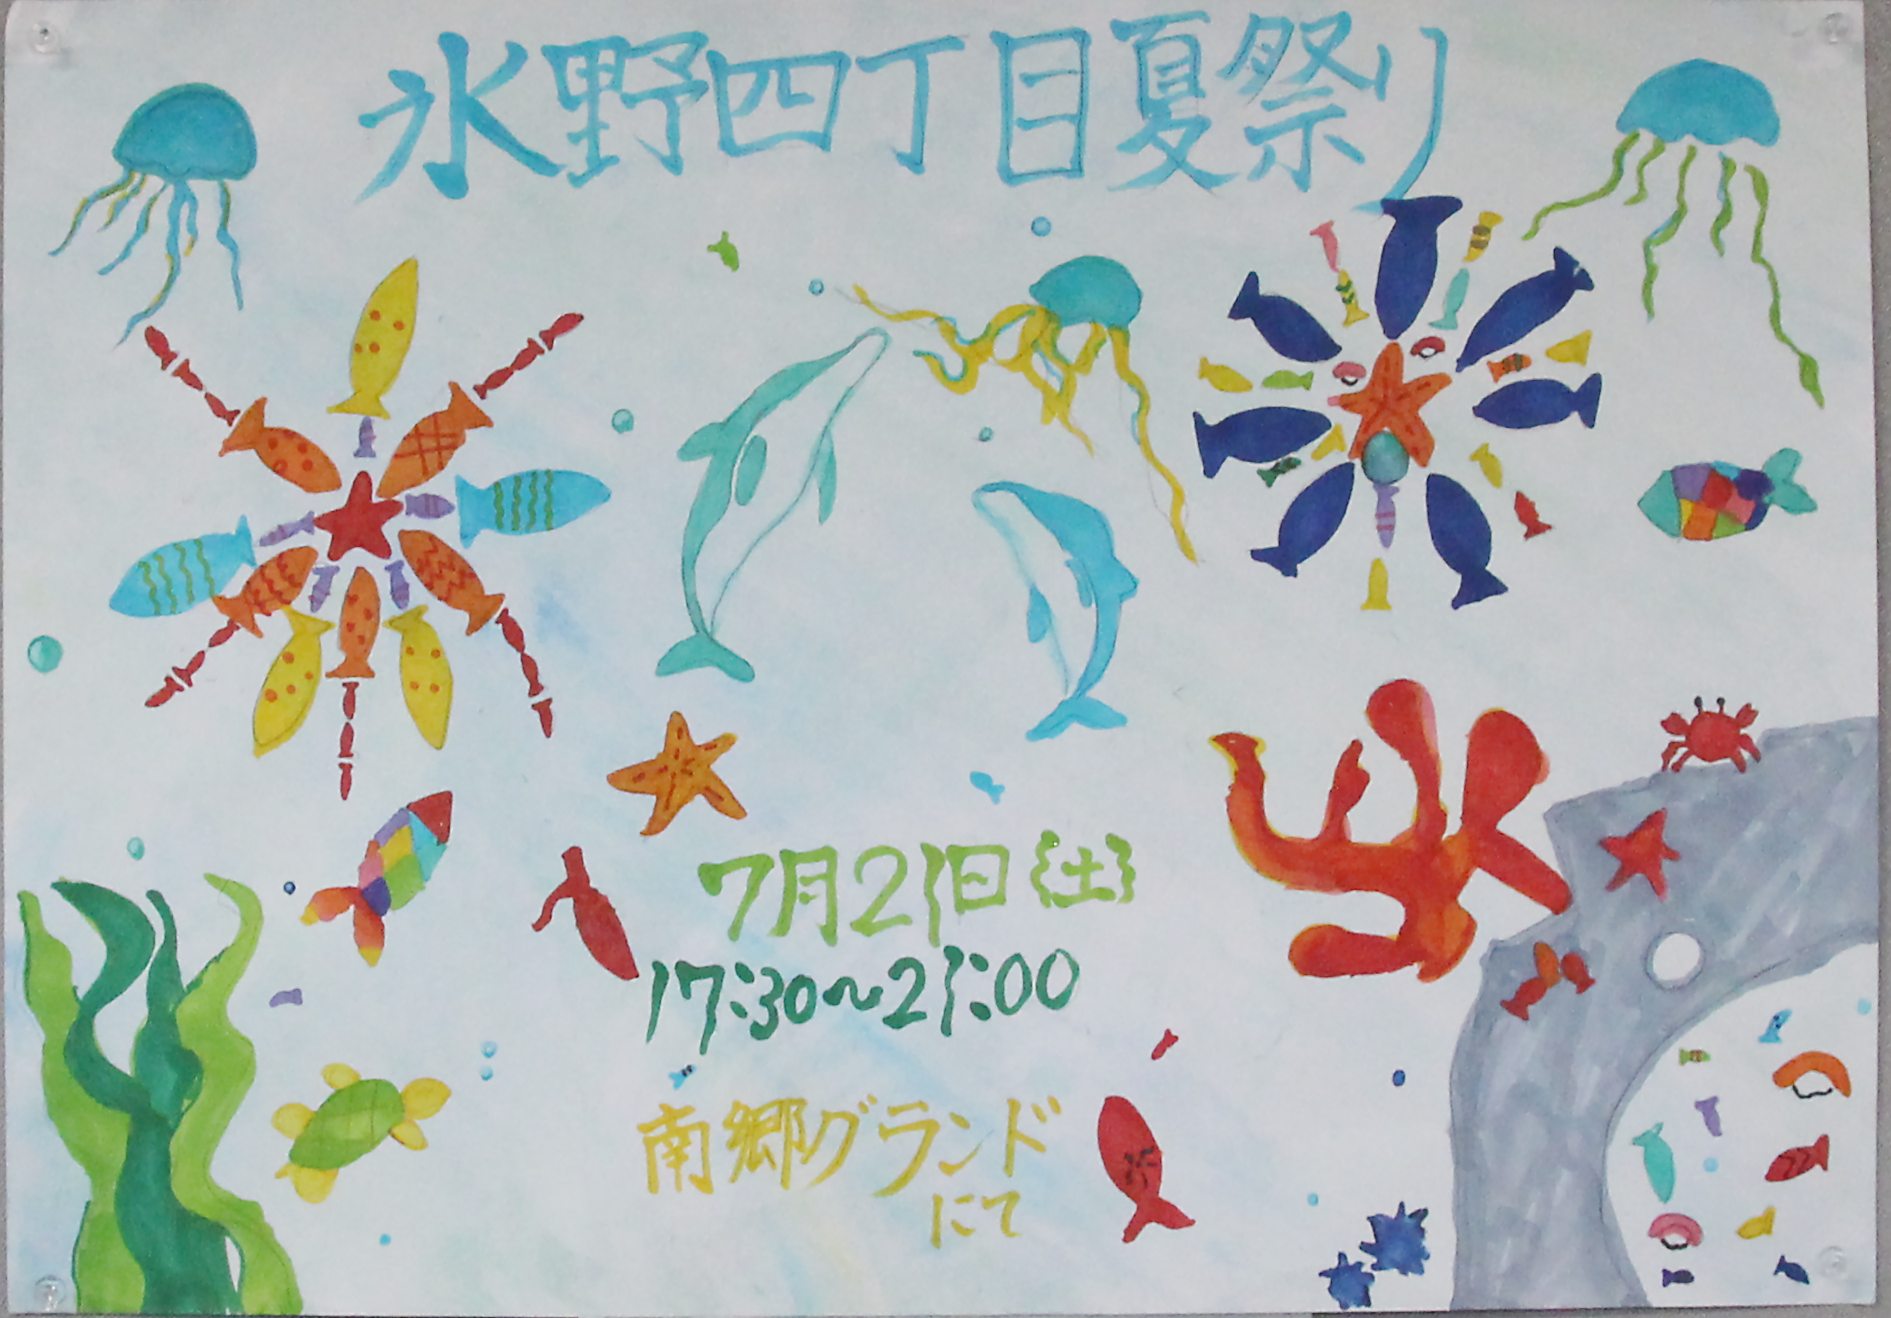 氷野四丁目夏祭り
7月21日(土)
17:30〜21:00
南郷グランド
にて